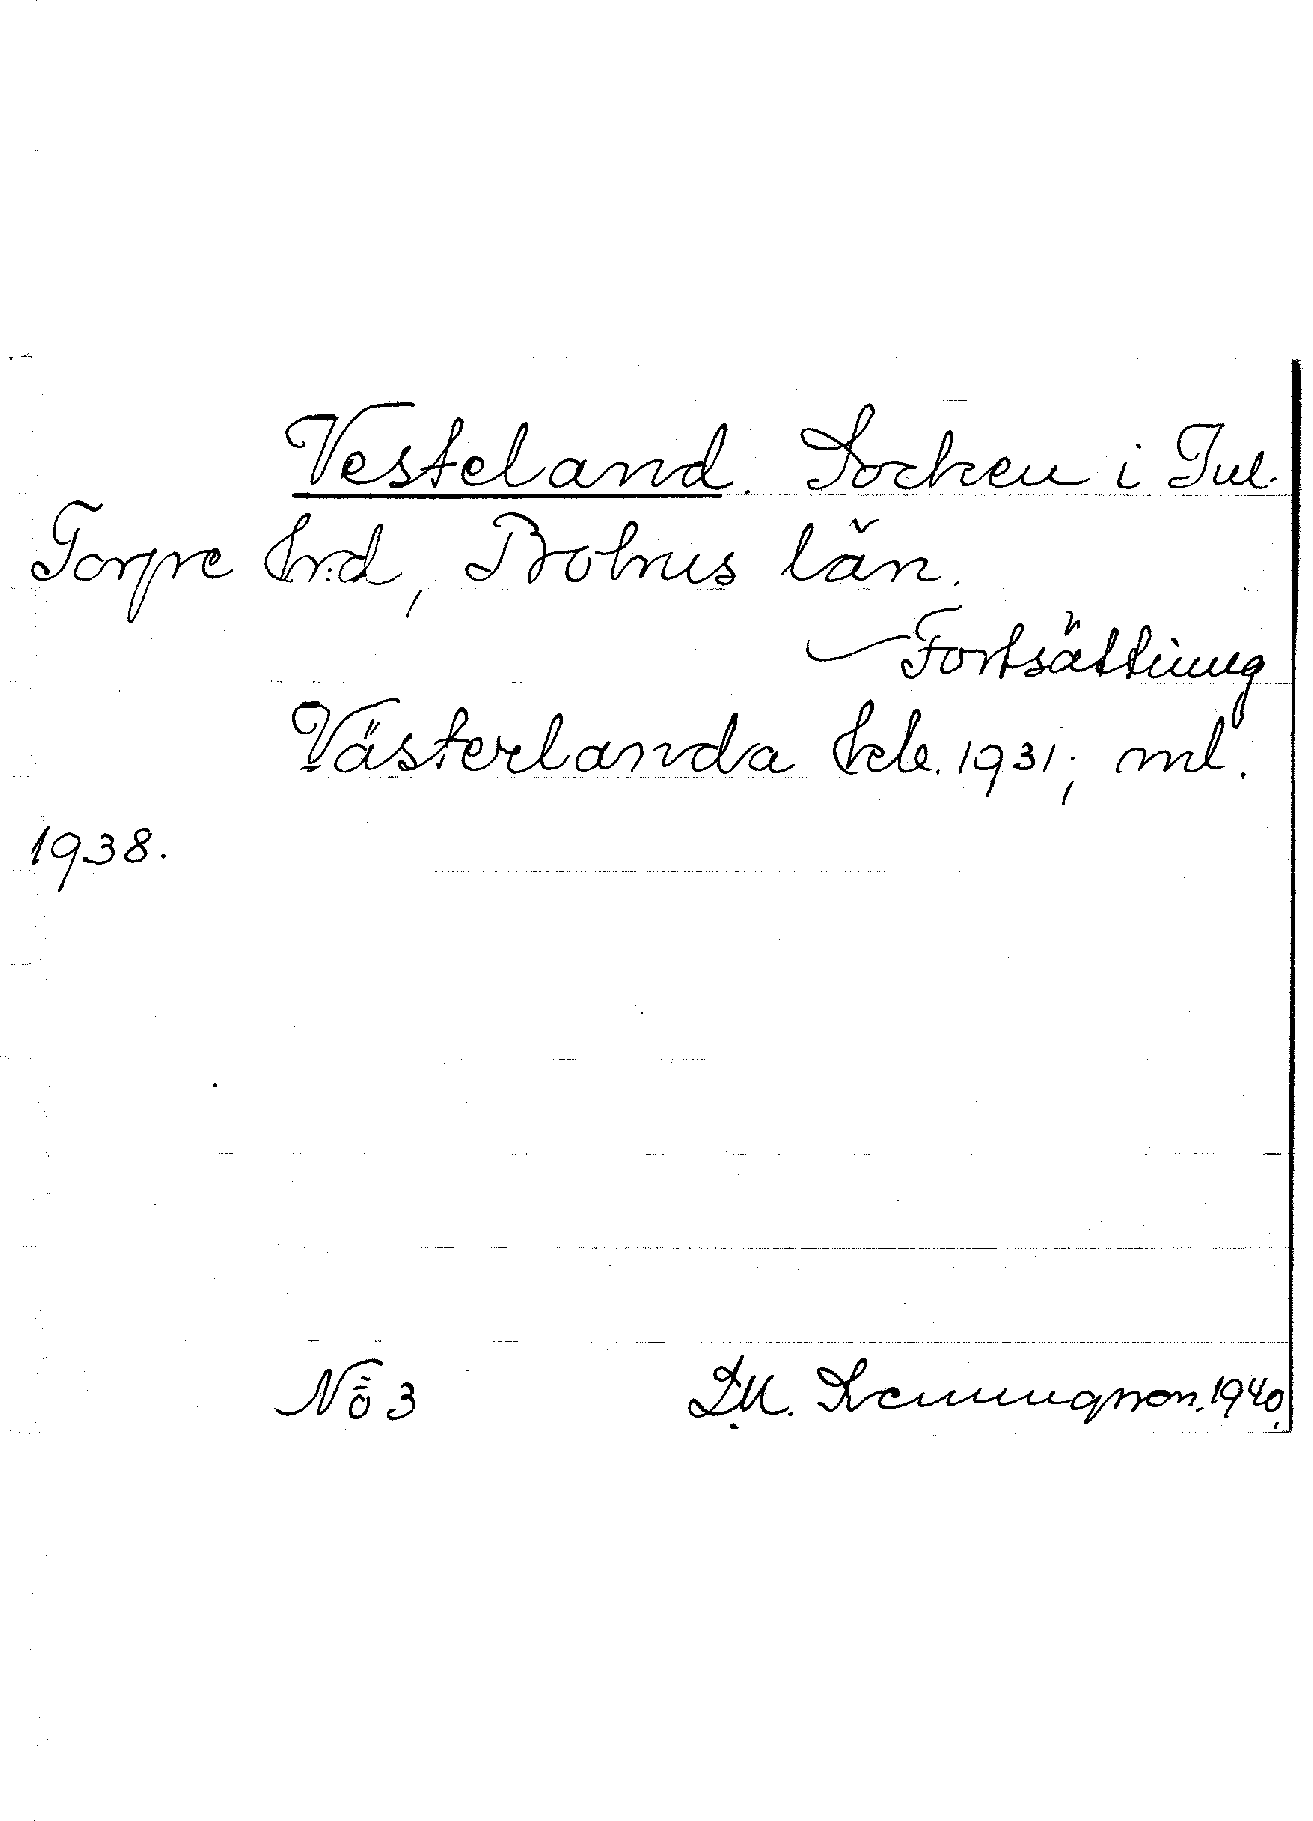 Vesteland. Socken i Inl.
Torpe hrd, Bohus län.
Fortsättning
Västerlanda kb. 1931; ml.
1938.
No 3
1940.